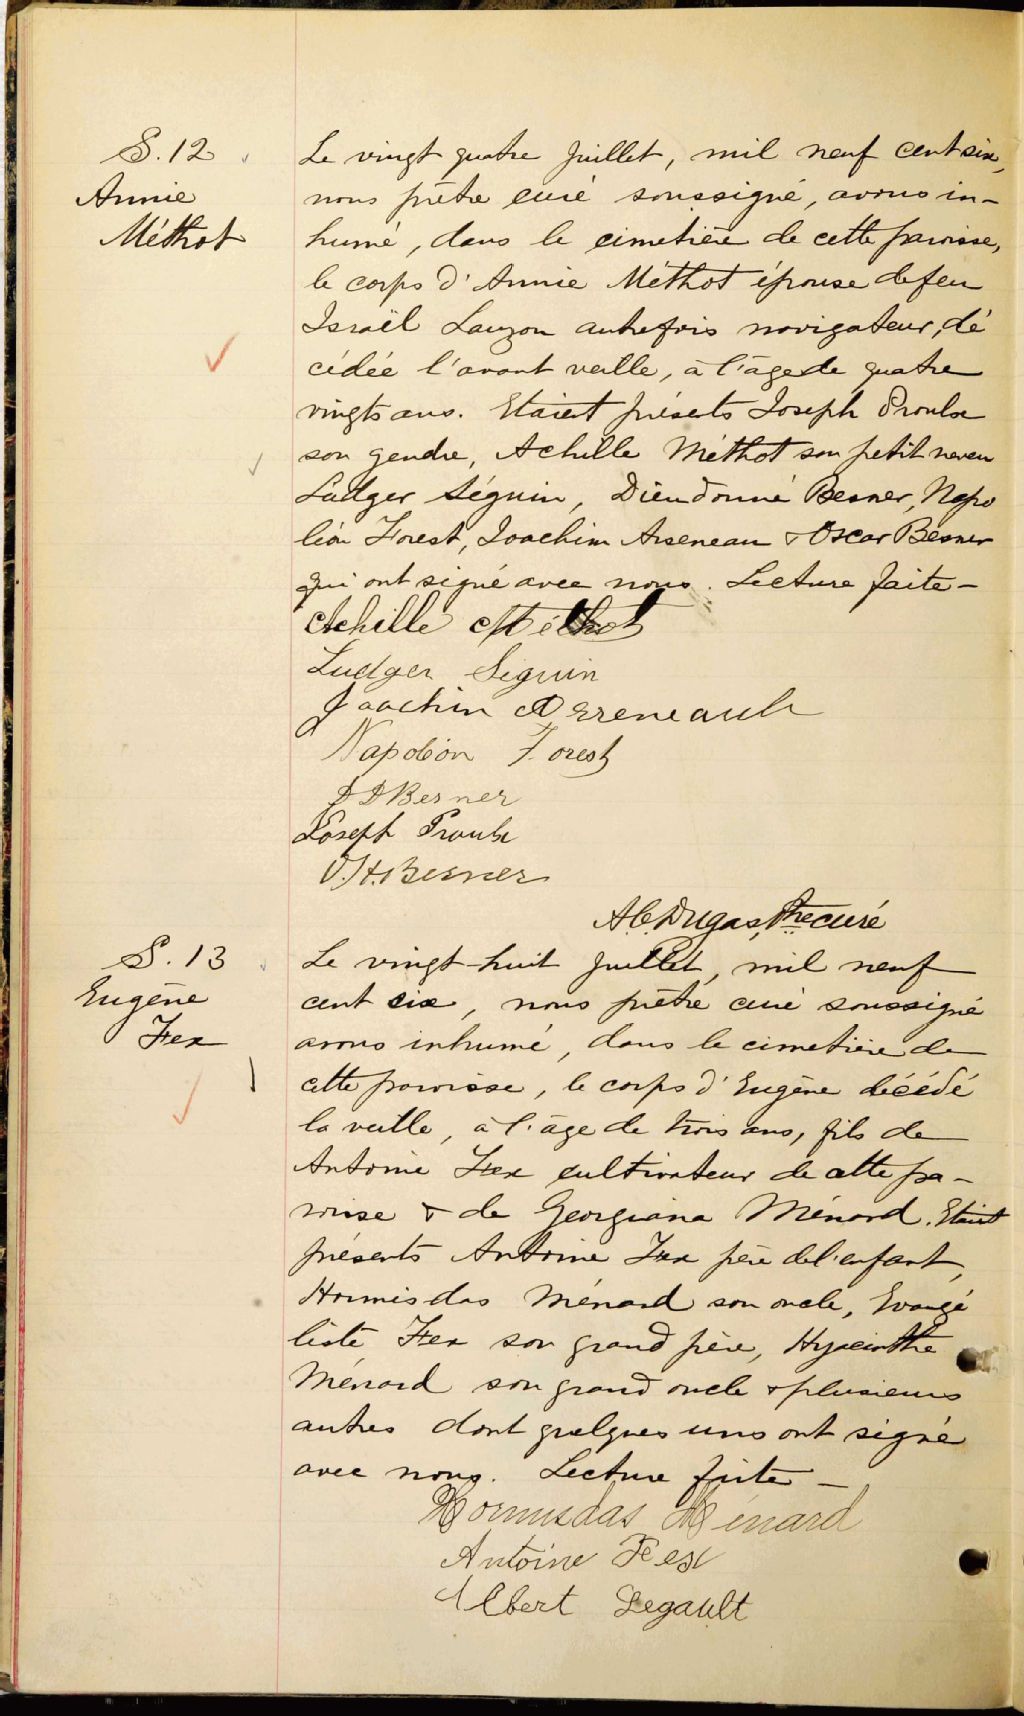 S. 12
Annie
Méthot
Le vingt quatre Juillet, mil neuf cent six,
nous prêtre curé soussigné, avons in-
humé, dans le cimetière de cette paroisse,
le corps d'Annie Méthot épouse de feu
Israël Lauzon autrefois navigateur, dé
cédée l'avant veille, à l'âge de quatre
vingts ans. Etaient présents Joseph Proulx
son gendre, Achille Méthot son petit neveu
Ludger Séguin, Dieudonné Besner, Napo
léon Forest, Joachim Arseneau & Oscar Besner
qui ont signé avec nous. Lecture faite -
Achille Méthot
Ludger Seguin
Joachin Arseneault
Napoléon Forest
D D Besner
Joseph Proulx
O. H. Besner
A. C. Dugas, Ptre curé
S. 13
Eugène
Fex
Le vingt-huit Juillet, mil neuf
cent six, nous prêtre curé soussigné
avons inhumé, dans le cimetière de
cette paroisse, le corps d'Eugène décédé
la veille, à l'âge de trois ans, fils de
Antoine Fex cultivateur de cette pa-
roisse & de Georgiana Ménard. Etaient
présents Antoine Fex père de l'enfant,
Hormisdas Ménard son oncle, Evangé
liste Fex son grand père, Hyacinthe
Ménard son grand oncle & plusieurs
autres dont quelques uns ont signé
avec nous. Lecture faite -
Hormisdas Ménard
Antoine Fex
Albert Legault